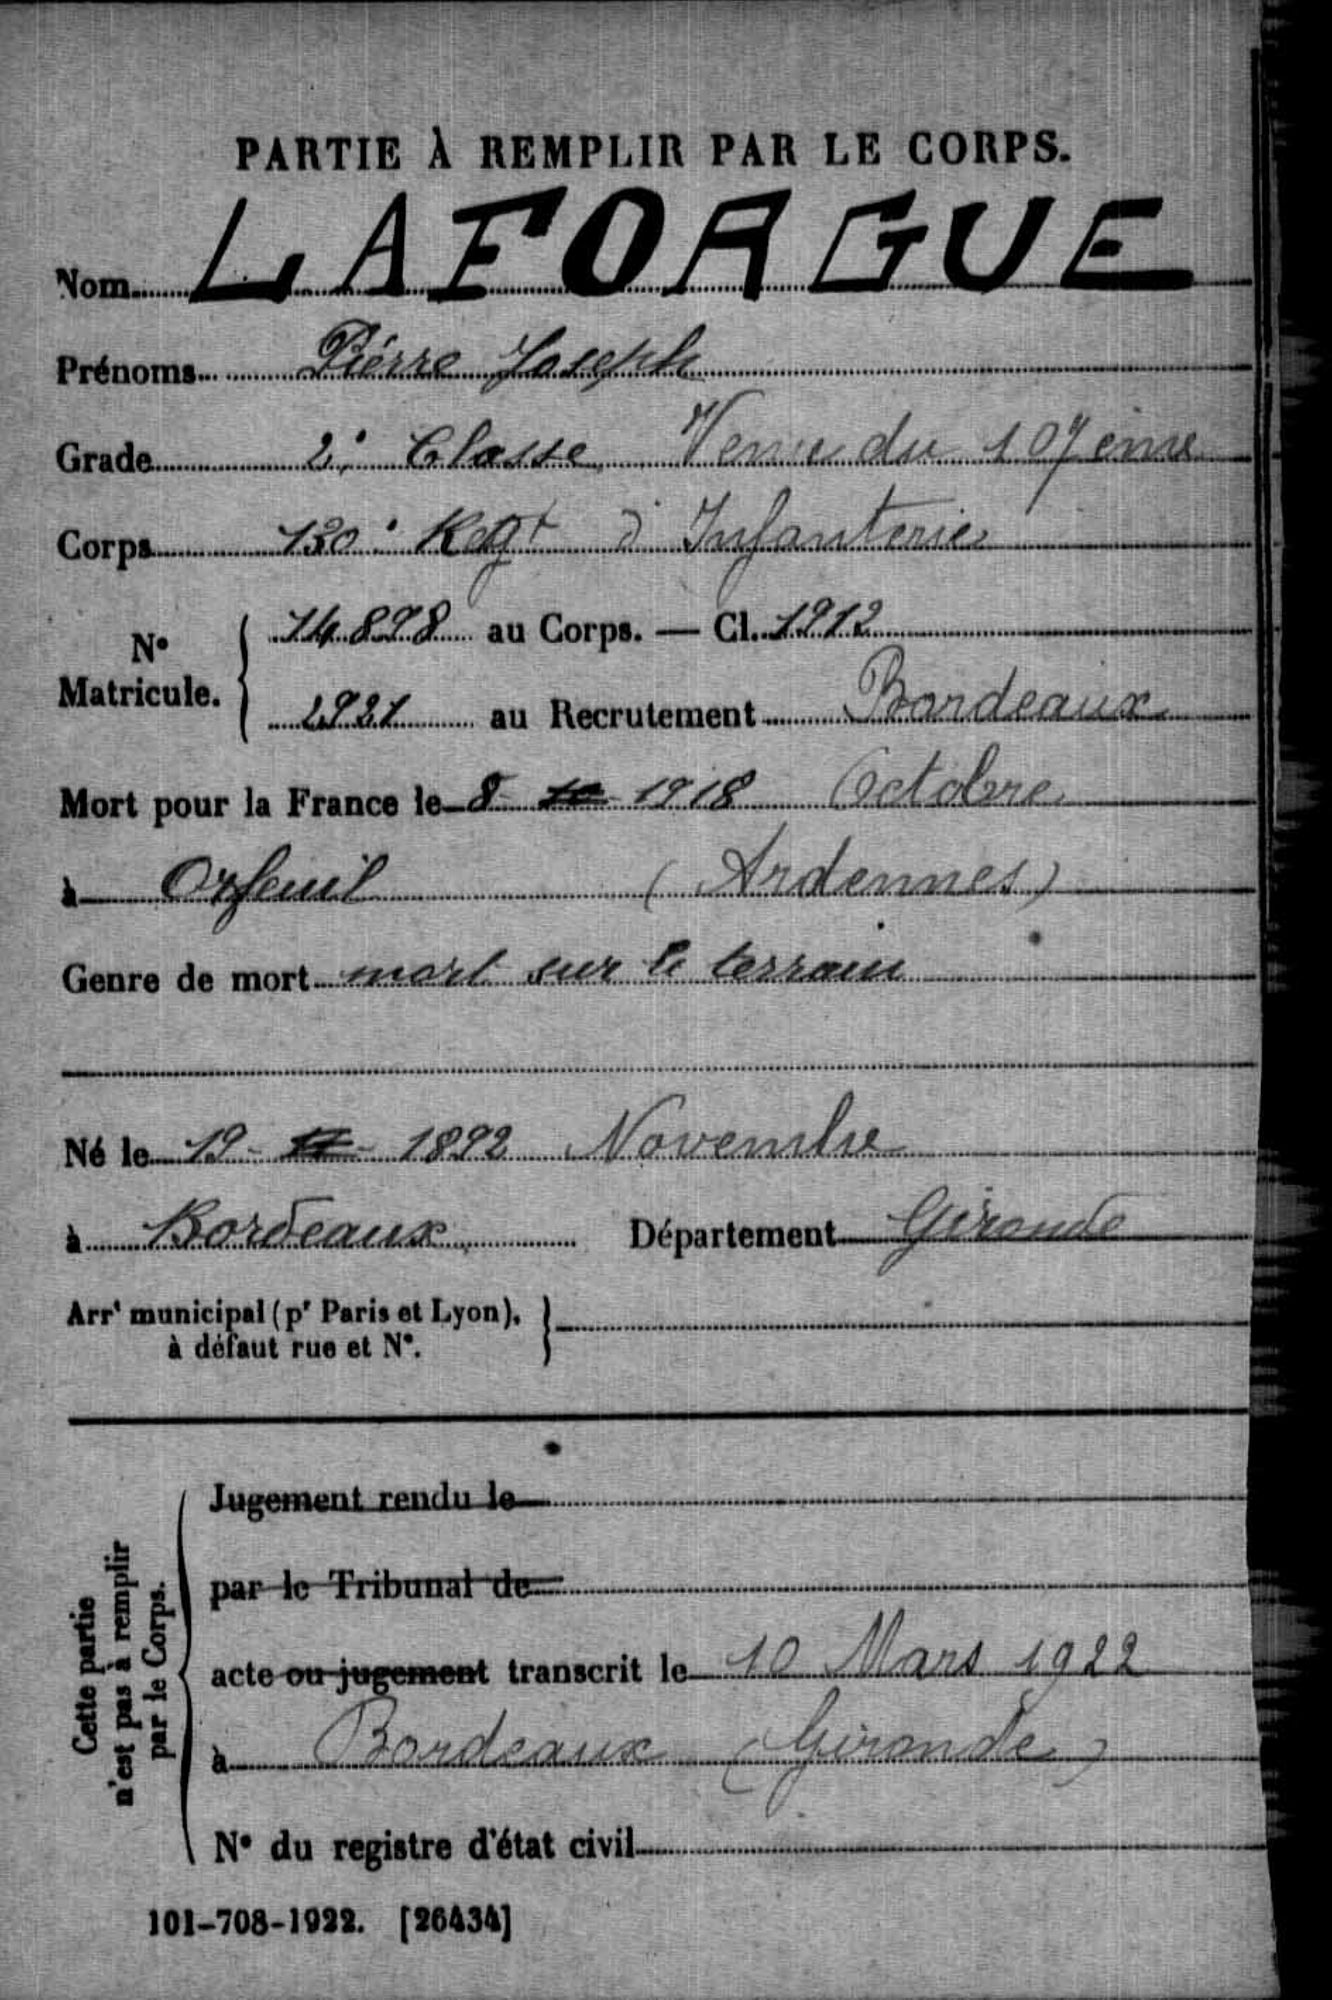 PARTIE À REMPLIR PAR LE CORPS.
Nom LAFORGUE
Prénoms Piérre Joseph
Grade 2e Classe Venu du 107 eme
Corps 130e Regt d'Infanterie
No Matricule. 14898 au Corps. — Cl. 1912
2931 au Recrutement Bordeaux
Mort pour la France le 8 10 1918 Octobre
à Orfeuil (Ardennes)
Genre de mort mort sur le terrain
Né le 19 - 11 - 1892 Novembre
à Bordeaux Département Gironde
Arrt municipal (pr Paris et Lyon),
à défaut rue et No.
Cette partie
n'est pas à remplir
par le Corps.
Jugement rendu le
par le Tribunal de
acte ou jugement transcrit le 10 Mars 1922
à Bordeaux (Gironde)
No du registre d'état civil
101-708-1922. [26434]